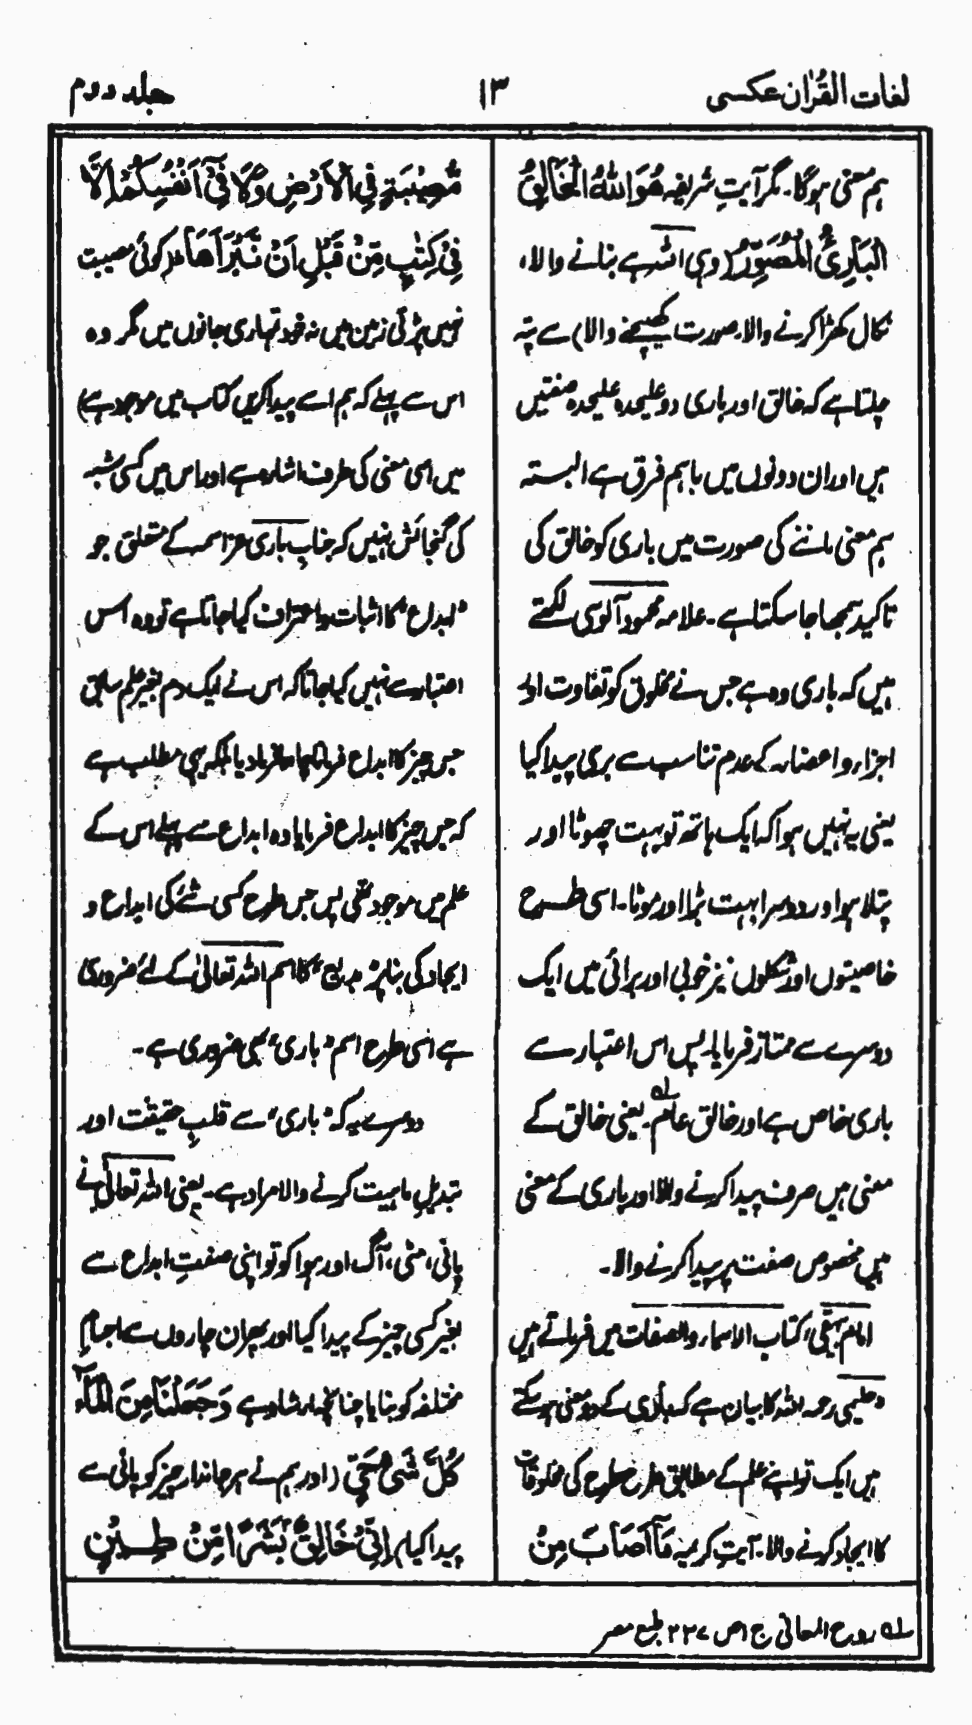 لغات القرآن عکسی
۱۳
جلد دوم
ہم معنی ہوگا۔ مگر آیتِ شریفہ هُوَ اللهُ الْخَالِقُ
الْبَارِئُ الْمُصَوِّرُ (وہی اللہ ہے بنانے والا،
نکال کھڑا کرنے والا۔ صورت کھینچنے والا) سے پتہ
چلتا ہے کہ خالق اور باری دو علیحدہ علیحدہ صفتیں
ہیں اور ان دونوں میں باہم فرق ہے البتہ
ہم معنی ماننے کی صورت میں باری کو خالق کی
تاکید سمجھا جا سکتا ہے۔ علامہ محمود آلوسی لکھتے
ہیں کہ باری وہ ہے جس نے مخلوق کو تفاوت اور
اجزاء و اعضاء کے عدم تناسب سے بری پیدا کیا
یعنی یہ نہیں ہوا کہ ایک ہاتھ تو بہت چھوٹا اور
پتلا ہو اور دوسرا بہت بڑا اور موٹا۔ اسی طرح
خاصیتوں اور شکلوں نیز خوبی اور برائی میں ایک
دوسرے سے ممتاز فرمایا۔ پس اس اعتبار سے
باری خاص ہے اور خالق عام۔ لہ یعنی خالق کے
معنی ہیں صرف پیدا کرنے والا اور باری کے معنی
ہیں مخصوص صفت پر پیدا کرنے والا۔
امام بیہقی، کتاب الاسماء والصفات میں فرماتے ہیں
حلیمی رحمہ اللہ کا بیان ہے کہ باری کے دو معنی ہو سکتے
ہیں ایک تو اپنے علم کے مطابق طرح طرح کی مخلوقات
کا ایجاد کرنے والا۔ آیتِ کریمہ مَآ اَصَابَ مِنْ
مُّصِيْبَةٍ فِي الْاَرْضِ وَلَا فِيْٓ اَنْفُسِكُمْ اِلَّا
فِيْ كِتٰبٍ مِّنْ قَبْلِ اَنْ نَّبْرَاَهَا (کوئی مصیبت
نہیں پڑتی زمین میں نہ خود تمہاری جانوں میں مگر وہ
اس سے پہلے کہ ہم اسے پیدا کریں کتاب میں موجود ہے)
میں اسی معنی کی طرف اشارہ ہے اور اس میں کسی شبہ
کی گنجائش نہیں کہ جنابِ باری عز اسمہ کے متعلق جو
"ابداع" کا اثبات و اعتراف کیا جاتا ہے تو وہ اس
اعتبار سے نہیں کیا جاتا کہ اس نے ایک دم بغیر علم سابق
جس چیز کا ابداع فرمانا چاہا فرما دیا بلکہ یہی مطلب ہے
کہ جس چیز کا ابداع فرمایا وہ ابداع سے پہلے اس کے
علم میں موجود تھی پس جس طرح کسی شئے کی ابداع و
ایجاد کی بنا پر "بدیع" کا اسم اللہ تعالیٰ کے لئے ضروری
ہے اسی طرح اسم "باری" بھی ضروری ہے۔
دوسرے یہ کہ "باری" سے قلبِ حقیقت اور
تبدیلِ ماہیت کرنے والا مراد ہے۔ یعنی اللہ تعالیٰ نے
پانی، مٹی، آگ اور ہوا کو تو اپنی صفتِ ابداع سے
بغیر کسی چیز کے پیدا کیا اور پھر ان چاروں سے اجسامِ
مختلفہ کو بنایا چنانچہ ارشاد ہے وَجَعَلْنَا مِنَ الْمَآءِ
كُلَّ شَيْءٍ حَيٍّ (اور ہم نے ہر جاندار چیز کو پانی سے
پیدا کیا) اِنِّيْ خَالِقٌۢ بَشَرًا مِّنْ طِيْنٍ
لہ روح المعانی ج اص ۲۲۷ طبع مصر